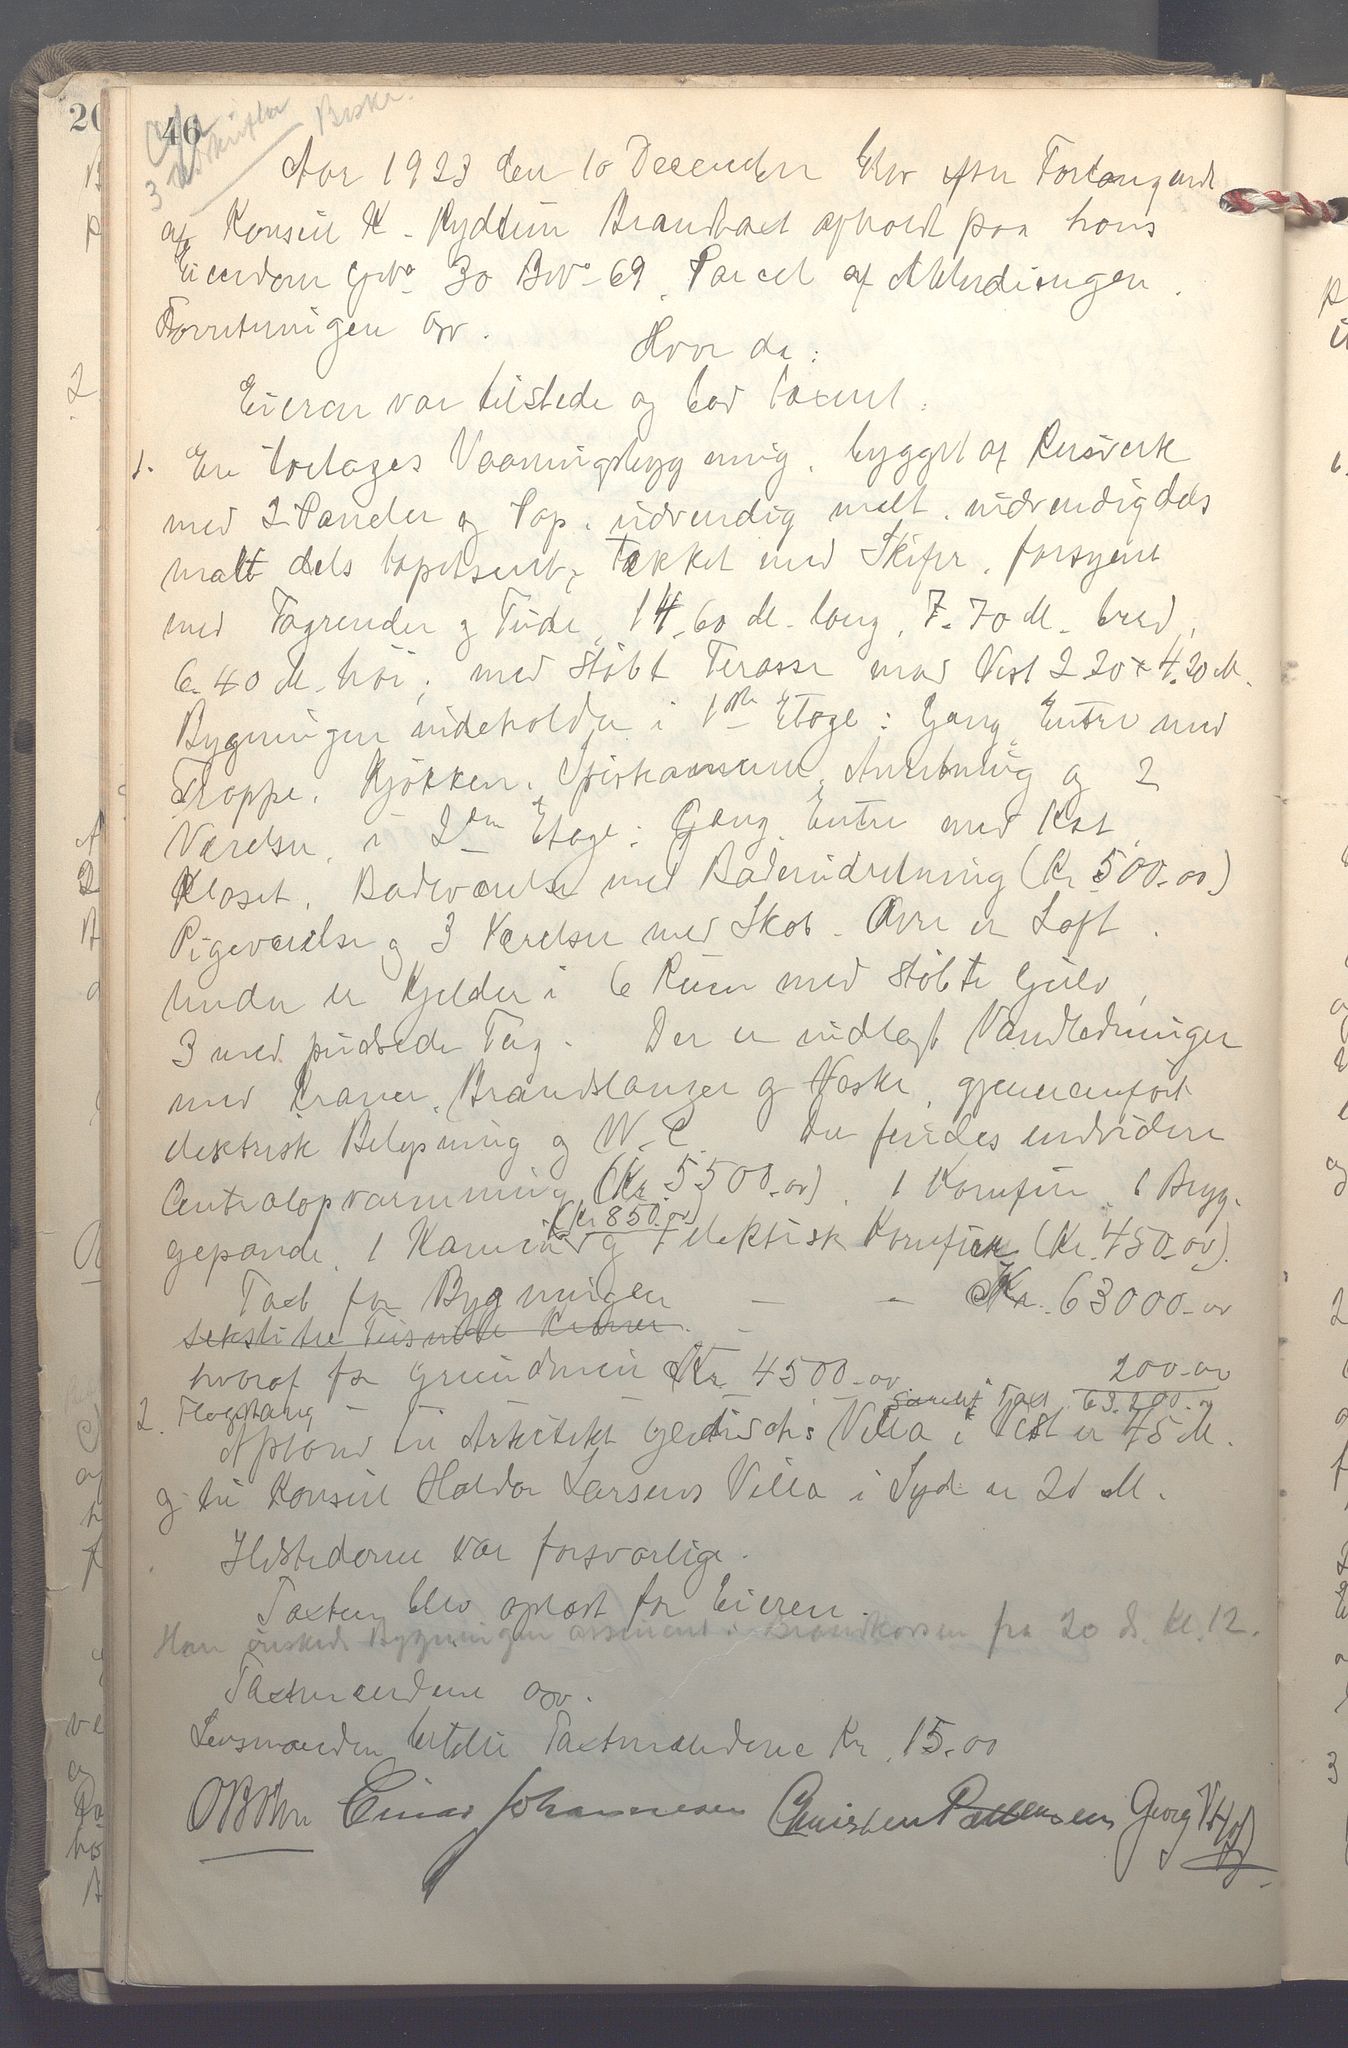 46
3 Udskrifter
Beskr.
Aar 1923 den 10 December blev efter Forlangende
af Konsul K. Rydtun Brandtaxt afholdt paa hans
Eiendom Gno 30 Bno 69. Parcel af
Forretningen opr.
Hvor da:
Eieren var tilstede og lod taxeret:
1. En toetages Vaaningsbygning, bygget af Reisverk
med 2 Paneler og Pap, udvendig malt, indvendig dels
malt dels tapetseret, tækket med Skifer, forsynet
med Tagrender og Tude, 14.60 M. lang, 7.70 M. bred,
6.40 M. høi, med støbt Terasse mod Vest 2.20 x 4.20 M.
Bygningen indeholder i 1ste Etage: Gang, Entre med
Trappe, Kjøkken, Spiskammer, Anretning og 2
Værelser, i 2den Etage: Gang, Entre med Kot,
Kloset, Badeværelse med Badeindretning (Kr 500.00)
Pigeværelse og 3 Værelser med Skab. Over er Loft.
Under er Kjelder i 6 Rum med støbte Gulv,
3 med pudsede Tag. Der er indlagt Vandledninger
med Kraner, Brandslanger og Vaske, gjennemført
elektrisk Belysning og W.C. Der findes endvidere
Centralopvarmning (Kr 5500.00), 1 Komfur, 1 Bryg-
(Kr 850.00)
gepande, 1 Kamin og 1 elektrisk Komfur (Kr. 450.00).
Taxt for Bygningen - - Kr. 63000.00
sekstitre Tusinde Kroner. -
hvoraf for Grundmur Kr. 4500.00 200.00
2. Flagstang - Samlet Taxt 63.200.00
Afstand til Arkitekt Villa i Vest er 45 M.
og til Konsul Haldor Larsens Villa i Syd er 21 M.
Ildstederne var forsvarlige.
Taxten blev oplæst for Eieren.
Han ønskede Bygningen assureret i Brandkassen fra 20 d. Kl. 12.
Taxtmændene opr.
Lensmanden betalte Taxtmændene Kr. 15.00
Einar Johannesen Christen Pettersen Georg